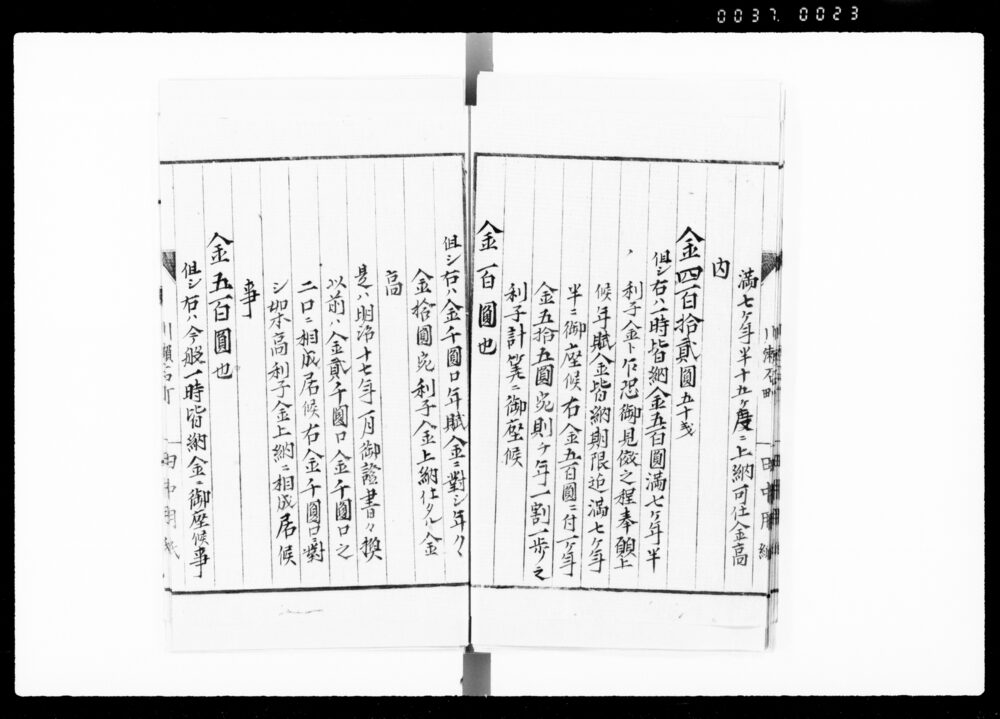 0037 0023
満七ケ年半十五ケ度ニ上納可仕金高
内
金四百拾貳圓五十戔
但シ右ハ一時皆納金五百圓満七ケ年半
利子金ト乍恐御見做之程奉願上
候年賦金皆納期限迠満七ケ年
半ニ御座候右金五百圓ニ付一ケ年
金五拾五圓宛則チ年一割一歩之
利子計筭ニ御座候
金一百圓也
但シ右ハ金千圓口年賦金ニ對シ年々
金拾圓宛利子金上納仕タル金
高
是ハ明治十七年一月御證書々換
以前ハ金貳千圓口金千圓口之
二口ニ相成居候右金千圓口對
シ如本高利子金上納ニ相成居候
事
金五百圓也
但シ右ハ今般一時皆納金ニ御座候事